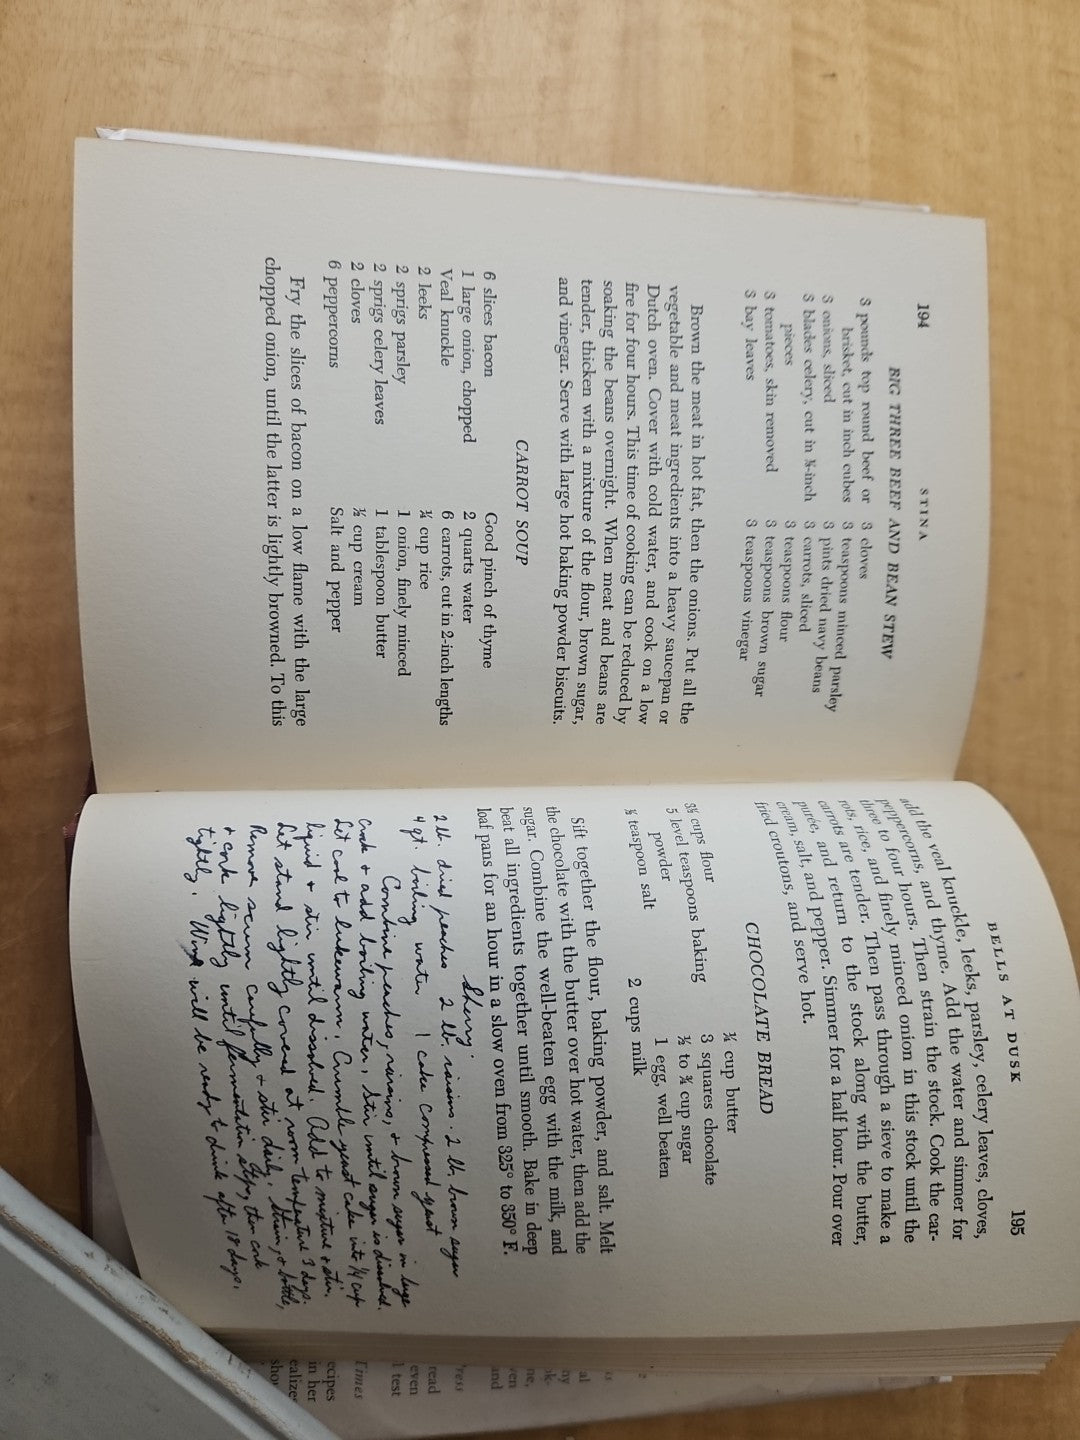 194
STINA
BIG THREE BEEF AND BEAN STEW
3 pounds top round beef or
brisket, cut in inch cubes
3 onions, sliced
3 blades celery, cut in ¾-inch
pieces
3 tomatoes, skin removed
3 bay leaves
3 cloves
3 teaspoons minced parsley
3 pints dried navy beans
3 carrots, sliced
3 teaspoons flour
3 teaspoons brown sugar
3 teaspoons vinegar
Brown the meat in hot fat, then the onions. Put all the
vegetable and meat ingredients into a heavy saucepan or
Dutch oven. Cover with cold water, and cook on a low
fire for four hours. This time of cooking can be reduced by
soaking the beans overnight. When meat and beans are
tender, thicken with a mixture of the flour, brown sugar,
and vinegar. Serve with large hot baking powder biscuits.
CARROT SOUP
6 slices bacon
1 large onion, chopped
Veal knuckle
2 leeks
2 sprigs parsley
2 sprigs celery leaves
2 cloves
6 peppercorns
Good pinch of thyme
2 quarts water
6 carrots, cut in 2-inch lengths
¼ cup rice
1 onion, finely minced
1 tablespoon butter
¾ cup cream
Salt and pepper
Fry the slices of bacon on a low flame with the large
chopped onion, until the latter is lightly browned. To this
BELLS AT DUSK
195
add the veal knuckle, leeks, parsley, celery leaves, cloves,
peppercorns, and thyme. Add the water and simmer for
three to four hours. Then strain the stock. Cook the car-
rots, rice, and finely minced onion in this stock until the
carrots are tender. Then pass through a sieve to make a
purée, and return to the stock along with the butter,
cream, salt, and pepper. Simmer for a half hour. Pour over
fried croutons, and serve hot.
CHOCOLATE BREAD
3½ cups flour
5 level teaspoons baking
powder
½ teaspoon salt
¼ cup butter
3 squares chocolate
½ to ¾ cup sugar
1 egg, well beaten
2 cups milk
Sift together the flour, baking powder, and salt. Melt
the chocolate with the butter over hot water, then add the
sugar. Combine the well-beaten egg with the milk, and
beat all ingredients together until smooth. Bake in deep
loaf pans for an hour in a slow oven from 325° to 350° F.
Sherry.
2 lb. dried peaches 2 lb. raisins. 2 lb brown sugar
4 qt. boiling water 1 cake compressed yeast
Combine peaches, raisins, + brown sugar in large
crock + add boiling water, Stir until sugar is dissolved.
Let cool to lukewarm, Crumble yeast cake into ¼ cup
liquid + stir until dissolved. Add to mixture + stir.
Let stand lightly covered at room temperature 9 days.
Remove scum carefully + stir daily. Strain, + bottle,
+ cork lightly until fermentation stops, then cork
tightly. Wine will be ready to drink after 18 days.
read
even
1 test
Times
ecipes
in her
ealize